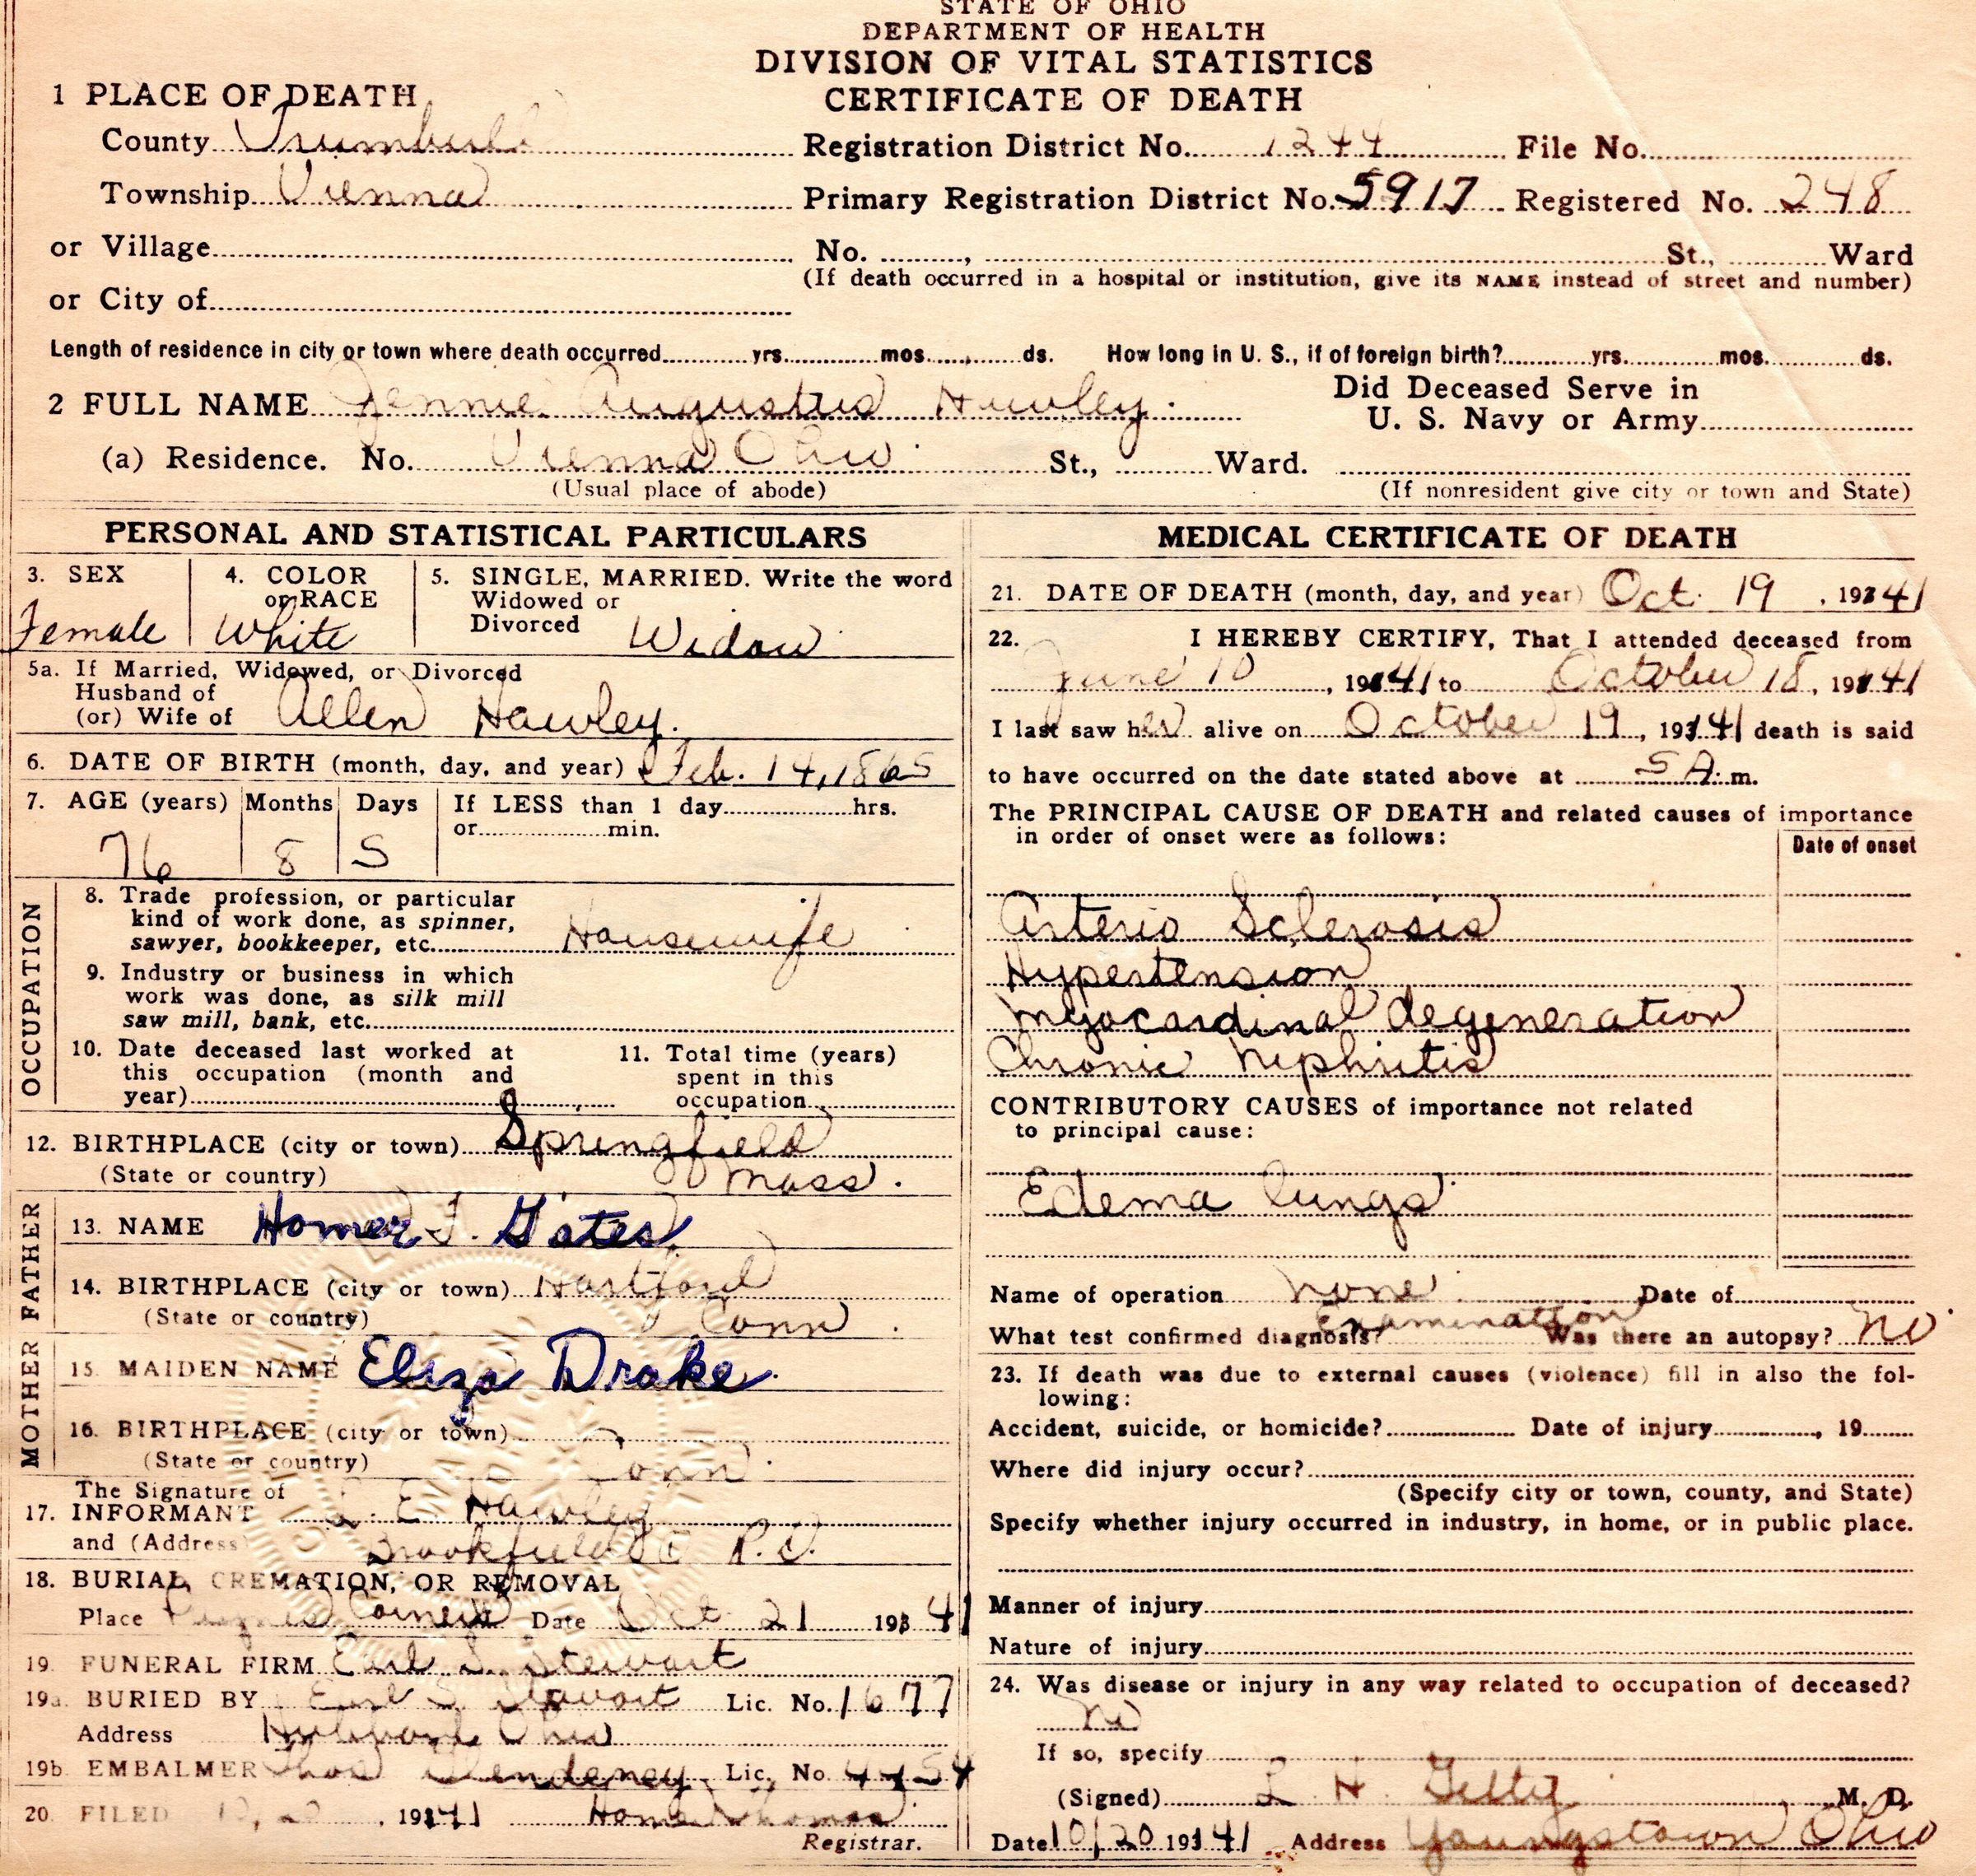 STATE OF OHIO
DEPARTMENT OF HEALTH
DIVISION OF VITAL STATISTICS
CERTIFICATE OF DEATH
1 PLACE OF DEATH
County Trumbull
Registration District No. 1244 File No.
Township Vienna
Primary Registration District No. 5917 Registered No. 248
or Village
No. , St., Ward
(If death occurred in a hospital or institution, give its NAME instead of street and number)
or City of
Length of residence in city or town where death occurred yrs. mos. ds. How long in U. S., if of foreign birth? yrs. mos. ds.
2 FULL NAME Jennie Augustus Hawley.
Did Deceased Serve in
U. S. Navy or Army
(a) Residence. No. Vienna Ohio St., Ward.
(Usual place of abode)
(If nonresident give city or town and State)
PERSONAL AND STATISTICAL PARTICULARS
3. SEX
Female
4. COLOR
or RACE
White
5. SINGLE, MARRIED. Write the word
Widowed or
Divorced Widow
5a. If Married, Widowed, or Divorced
Husband of
(or) Wife of Allen Hawley.
6. DATE OF BIRTH (month, day, and year) Feb. 14, 1865
7. AGE (years) Months Days
76 8 5
If LESS than 1 day hrs.
or min.
OCCUPATION
8. Trade profession, or particular
kind of work done, as spinner,
sawyer, bookkeeper, etc. Housewife
9. Industry or business in which
work was done, as silk mill
saw mill, bank, etc.
10. Date deceased last worked at
this occupation (month and
year)
11. Total time (years)
spent in this
occupation
12. BIRTHPLACE (city or town) Springfield
(State or country) Mass.
FATHER
13. NAME Homer Gates
14. BIRTHPLACE (city or town) Hartford
(State or country) Conn.
MOTHER
15. MAIDEN NAME Eliza Drake
16. BIRTHPLACE (city or town)
(State or country) Conn.
The Signature of
17. INFORMANT E Hawley
and (Address Brookfield O R.D.
18. BURIAL, CREMATION, OR REMOVAL
Place Corners Date Oct 21 1941
19. FUNERAL FIRM Earl S. Stewart
19a. BURIED BY Earl S. Stewart Lic. No. 1677
Address Hubbard Ohio
19b. EMBALMER Lic. No. 4454
20. FILED 10, 20, 1941 Homer Thomas
Registrar.
MEDICAL CERTIFICATE OF DEATH
21. DATE OF DEATH (month, day, and year) Oct. 19, 1941
22. I HEREBY CERTIFY, That I attended deceased from
June 10, 1941 to October 18, 1941
I last saw her alive on October 19, 1941 death is said
to have occurred on the date stated above at 5 A. m.
The PRINCIPAL CAUSE OF DEATH and related causes of importance
in order of onset were as follows:
Date of onset
Arterio Sclerosis
Hypertension
Myocardinal degeneration
Chronic Nephritis
CONTRIBUTORY CAUSES of importance not related
to principal cause:
Edema lungs
Name of operation none Date of
What test confirmed diagnosis? Examination Was there an autopsy? No
23. If death was due to external causes (violence) fill in also the fol-
lowing:
Accident, suicide, or homicide? Date of injury , 19
Where did injury occur?
(Specify city or town, county, and State)
Specify whether injury occurred in industry, in home, or in public place.
Manner of injury
Nature of injury
24. Was disease or injury in any way related to occupation of deceased?
No
If so, specify
(Signed) L H Getty M. D.
Date 10/20 1941 Address Youngstown Ohio